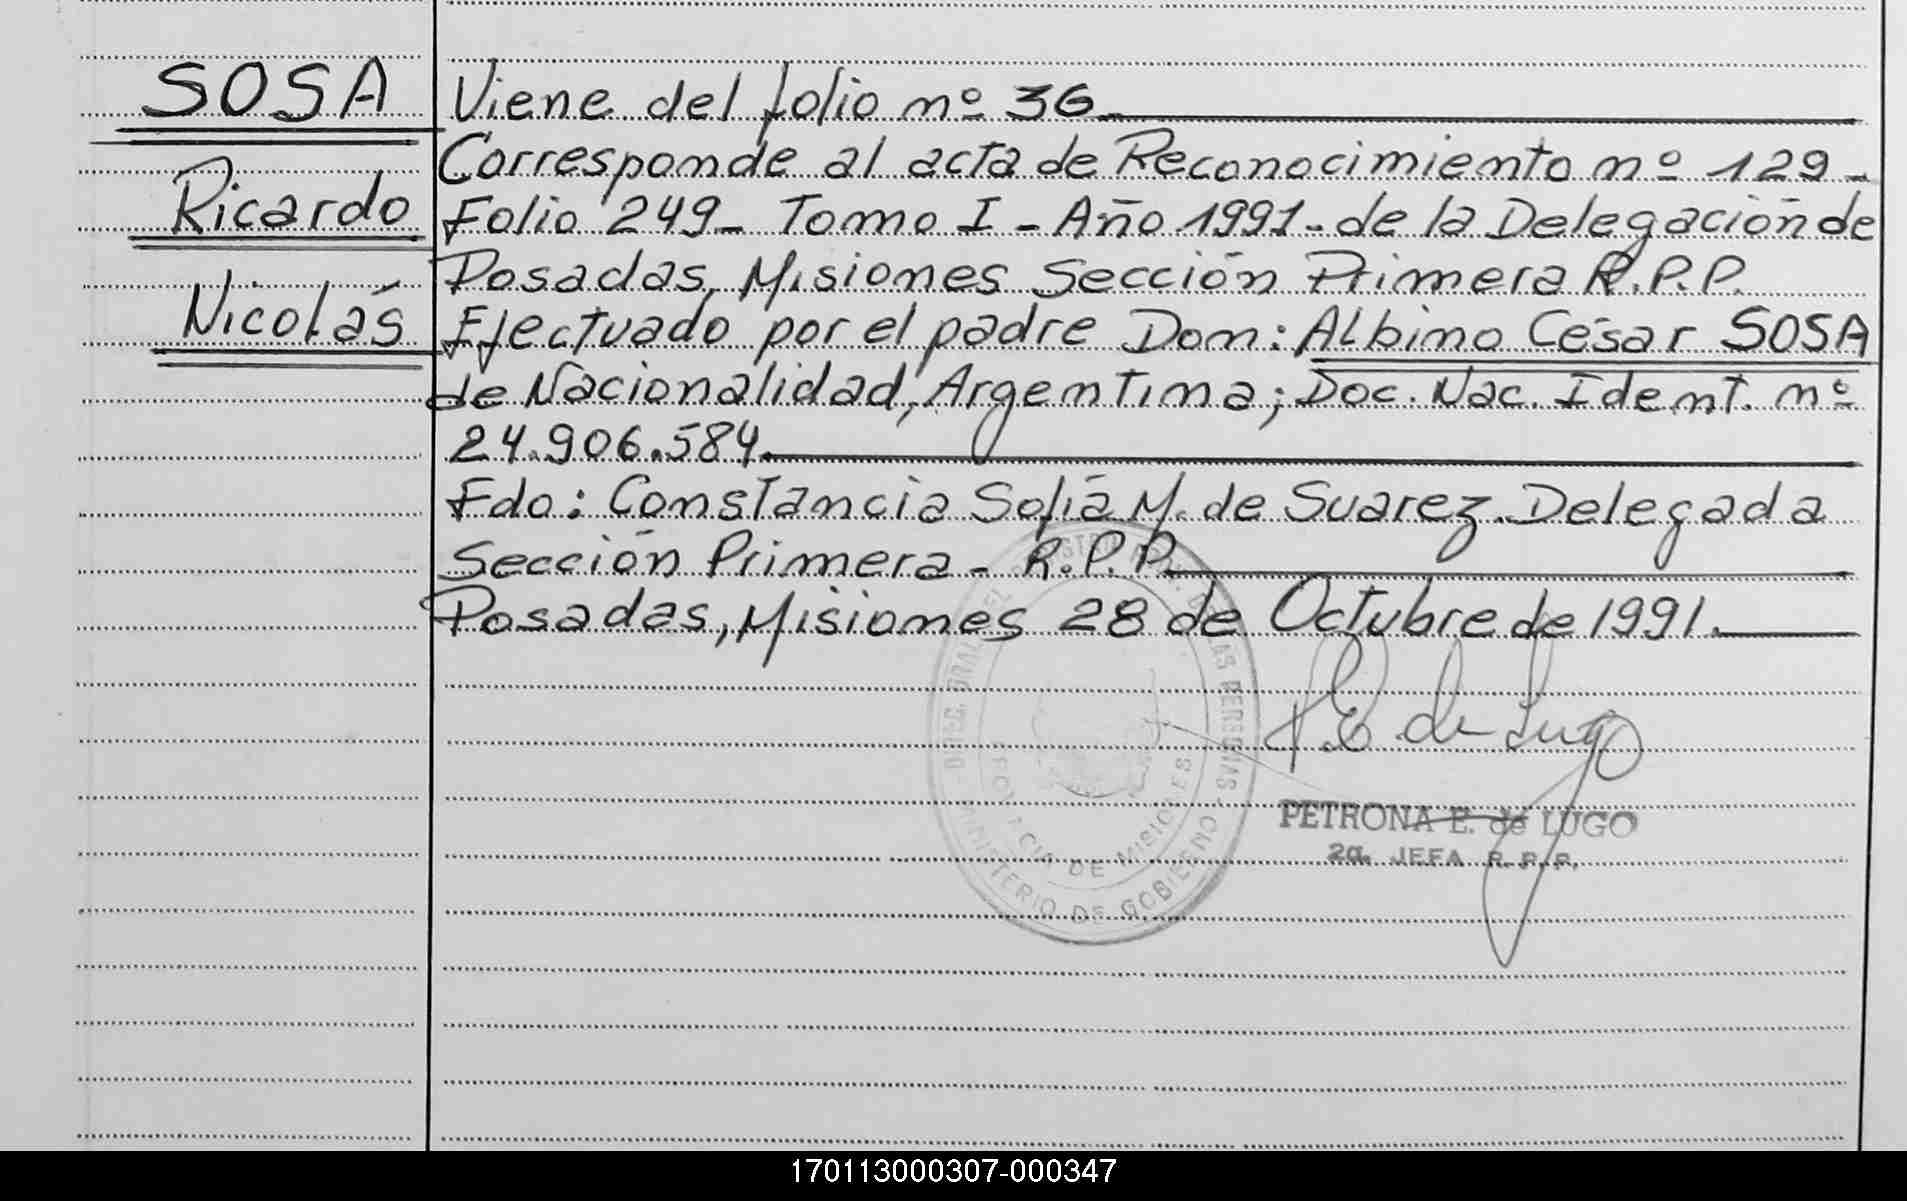 SOSA
Ricardo
Nicolás
Viene del folio nº 36
Corresponde al acta de Reconocimiento nº 129-
Folio 249- Tomo I - Año 1991- de la Delegación de
Posadas, Misiones Sección Primera R.P.P.
Efectuado por el padre Don: Albino César SOSA
de Nacionalidad, Argentina; Doc. Nac. Ident. nº
24.906.584.
Fdo: Constancia Sofía M. de Suarez. Delegada
Sección Primera - R.P.P.
Posadas, Misiones 28 de Octubre de 1991.
P.E. de Lugo
PETRONA E. de LUGO
2a. JEFA R.P.P.
DE LAS PERSONAS
PROVINCIA DE MISIONES
MINISTERIO DE GOBIERNO
170113000307-000347